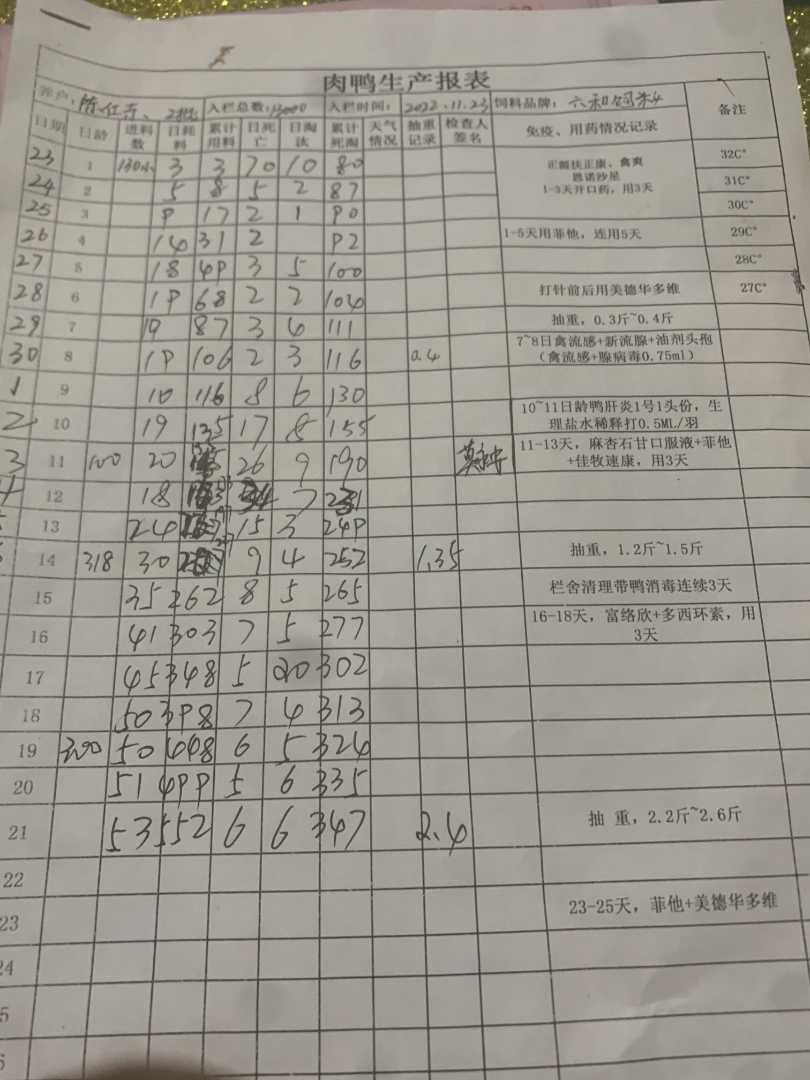 肉鸭生产报表
养户: 陈仁 2批 入栏总数: 13000 入栏时间: 2022.11.23 饲料品牌: 六和饲料 备注
日期 日龄 进料数 日耗料 累计用料 日死亡 日淘汰 累计死淘 天气情况 抽重记录 检查人签名 免疫、用药情况记录
23 1 130 3 3 70 10 80 正颜扶正康、禽爽 恩诺沙星 1-3天开口药，用3天 32C°
24 2 5 8 5 2 87 31C°
25 3 9 17 2 1 90 30C°
26 4 14 31 2 92 1-5天用菲他，连用5天 29C°
27 5 18 49 3 5 100 28C°
28 6 19 68 2 2 104 打针前后用美德华多维 27C°
29 7 19 87 3 4 111 抽重，0.3斤~0.4斤
30 8 19 106 2 3 116 0.4 7~8日禽流感+新流腺+油剂头孢（禽流感+腺病毒0.75ml）
1 9 10 116 8 6 130
2 10 19 135 17 8 155 10~11日龄鸭肝炎1号1头份，生理盐水稀释打0.5ML/羽
3 11 100 20 26 9 190 11-13天，麻杏石甘口服液+菲他+佳牧速康，用3天
4 12 18 34 7 231
13 24 15 3 249
14 318 30 9 4 252 1.35 抽重，1.2斤~1.5斤
15 35 262 8 5 265 栏舍清理带鸭消毒连续3天
16 41 303 7 5 277 16-18天，富络欣+多西环素，用3天
17 45 348 5 20 302
18 50 398 7 4 313
19 300 50 448 6 5 324
20 51 499 5 6 335
21 53 552 6 6 347 2.4 抽 重，2.2斤~2.6斤
22
23 23-25天，菲他+美德华多维
24
5
6